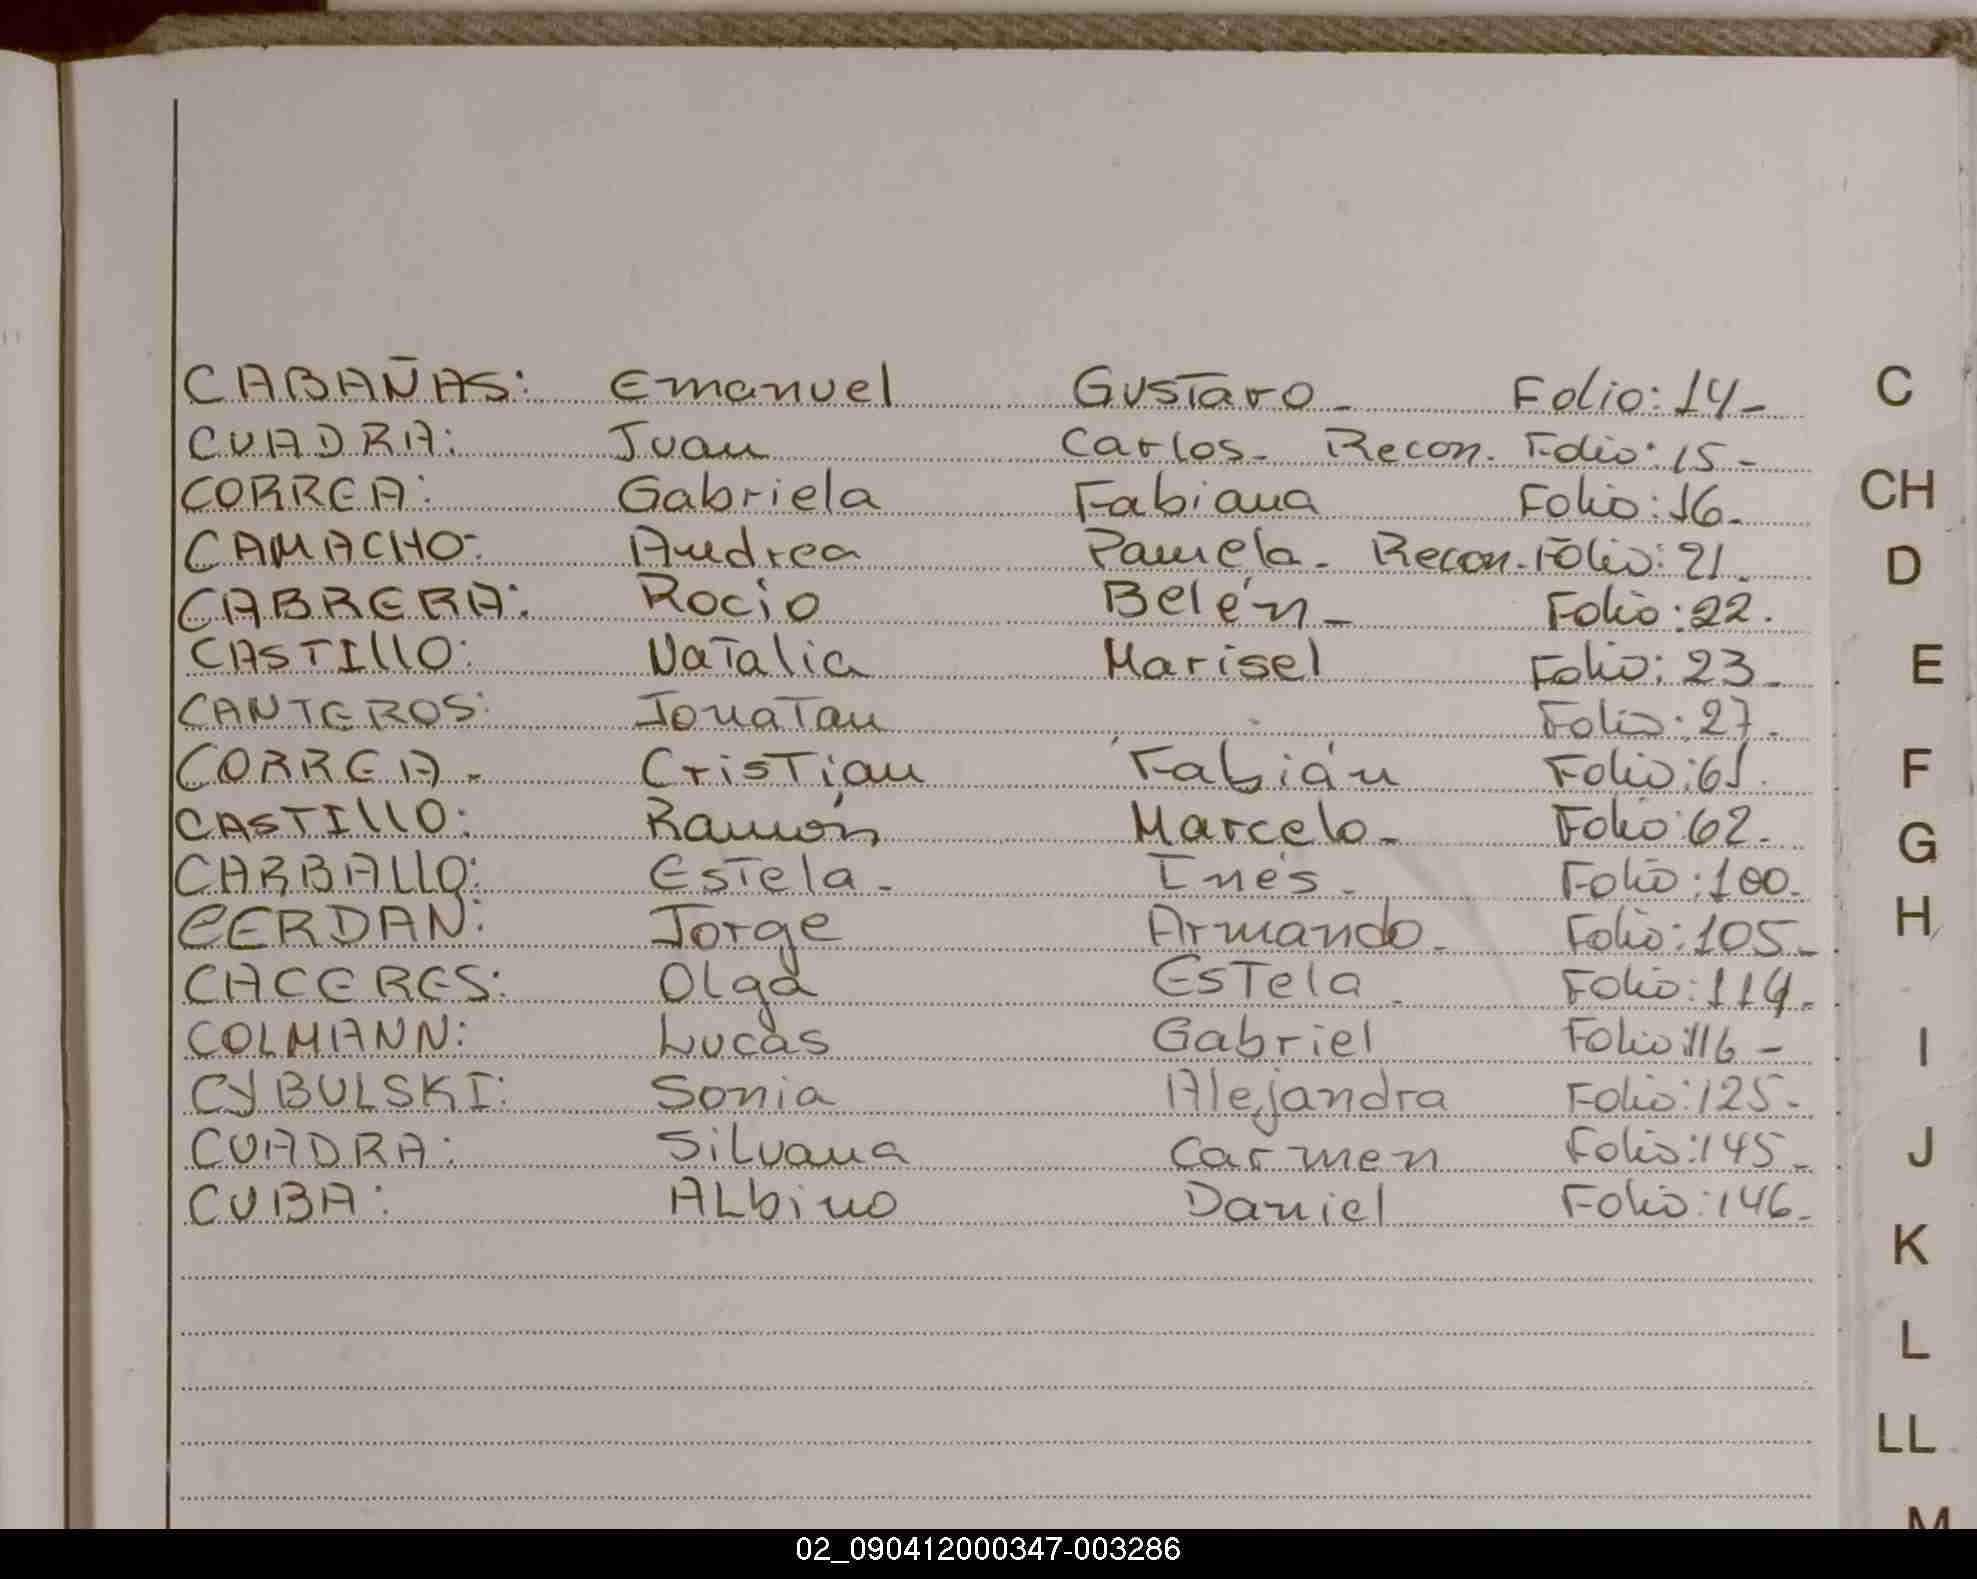 CABAÑAS: Emanuel Gustavo - Folio: 14 -
CUADRA: Juan Carlos - Recon. Folio: 15 -
CORREA: Gabriela Fabiana Folio: 16 -
CAMACHO: Andrea Pamela - Recon. Folio: 21 -
CABRERA: Rocio Belén - Folio: 22.
CASTILLO: Natalia Marisel Folio: 23 -
CANTEROS: Jonatan Folio: 27 -
CORREA - Cristian Fabián Folio: 61.
CASTILLO: Ramón Marcelo - Folio: 62 -
CARBALLO: Estela - Inés - Folio: 100 -
CERDAN: Jorge Armando - Folio: 105 -
CACERES: Olga Estela - Folio: 114 -
COLMANN: Lucas Gabriel Folio: 116 -
CYBULSKI: Sonia Alejandra Folio: 125 -
CUADRA: Silvana Carmen Folio: 145 -
CUBA: Albino Daniel Folio: 146 -
C
CH
D
E
F
G
H
I
J
K
L
LL
M
02_090412000347-003286